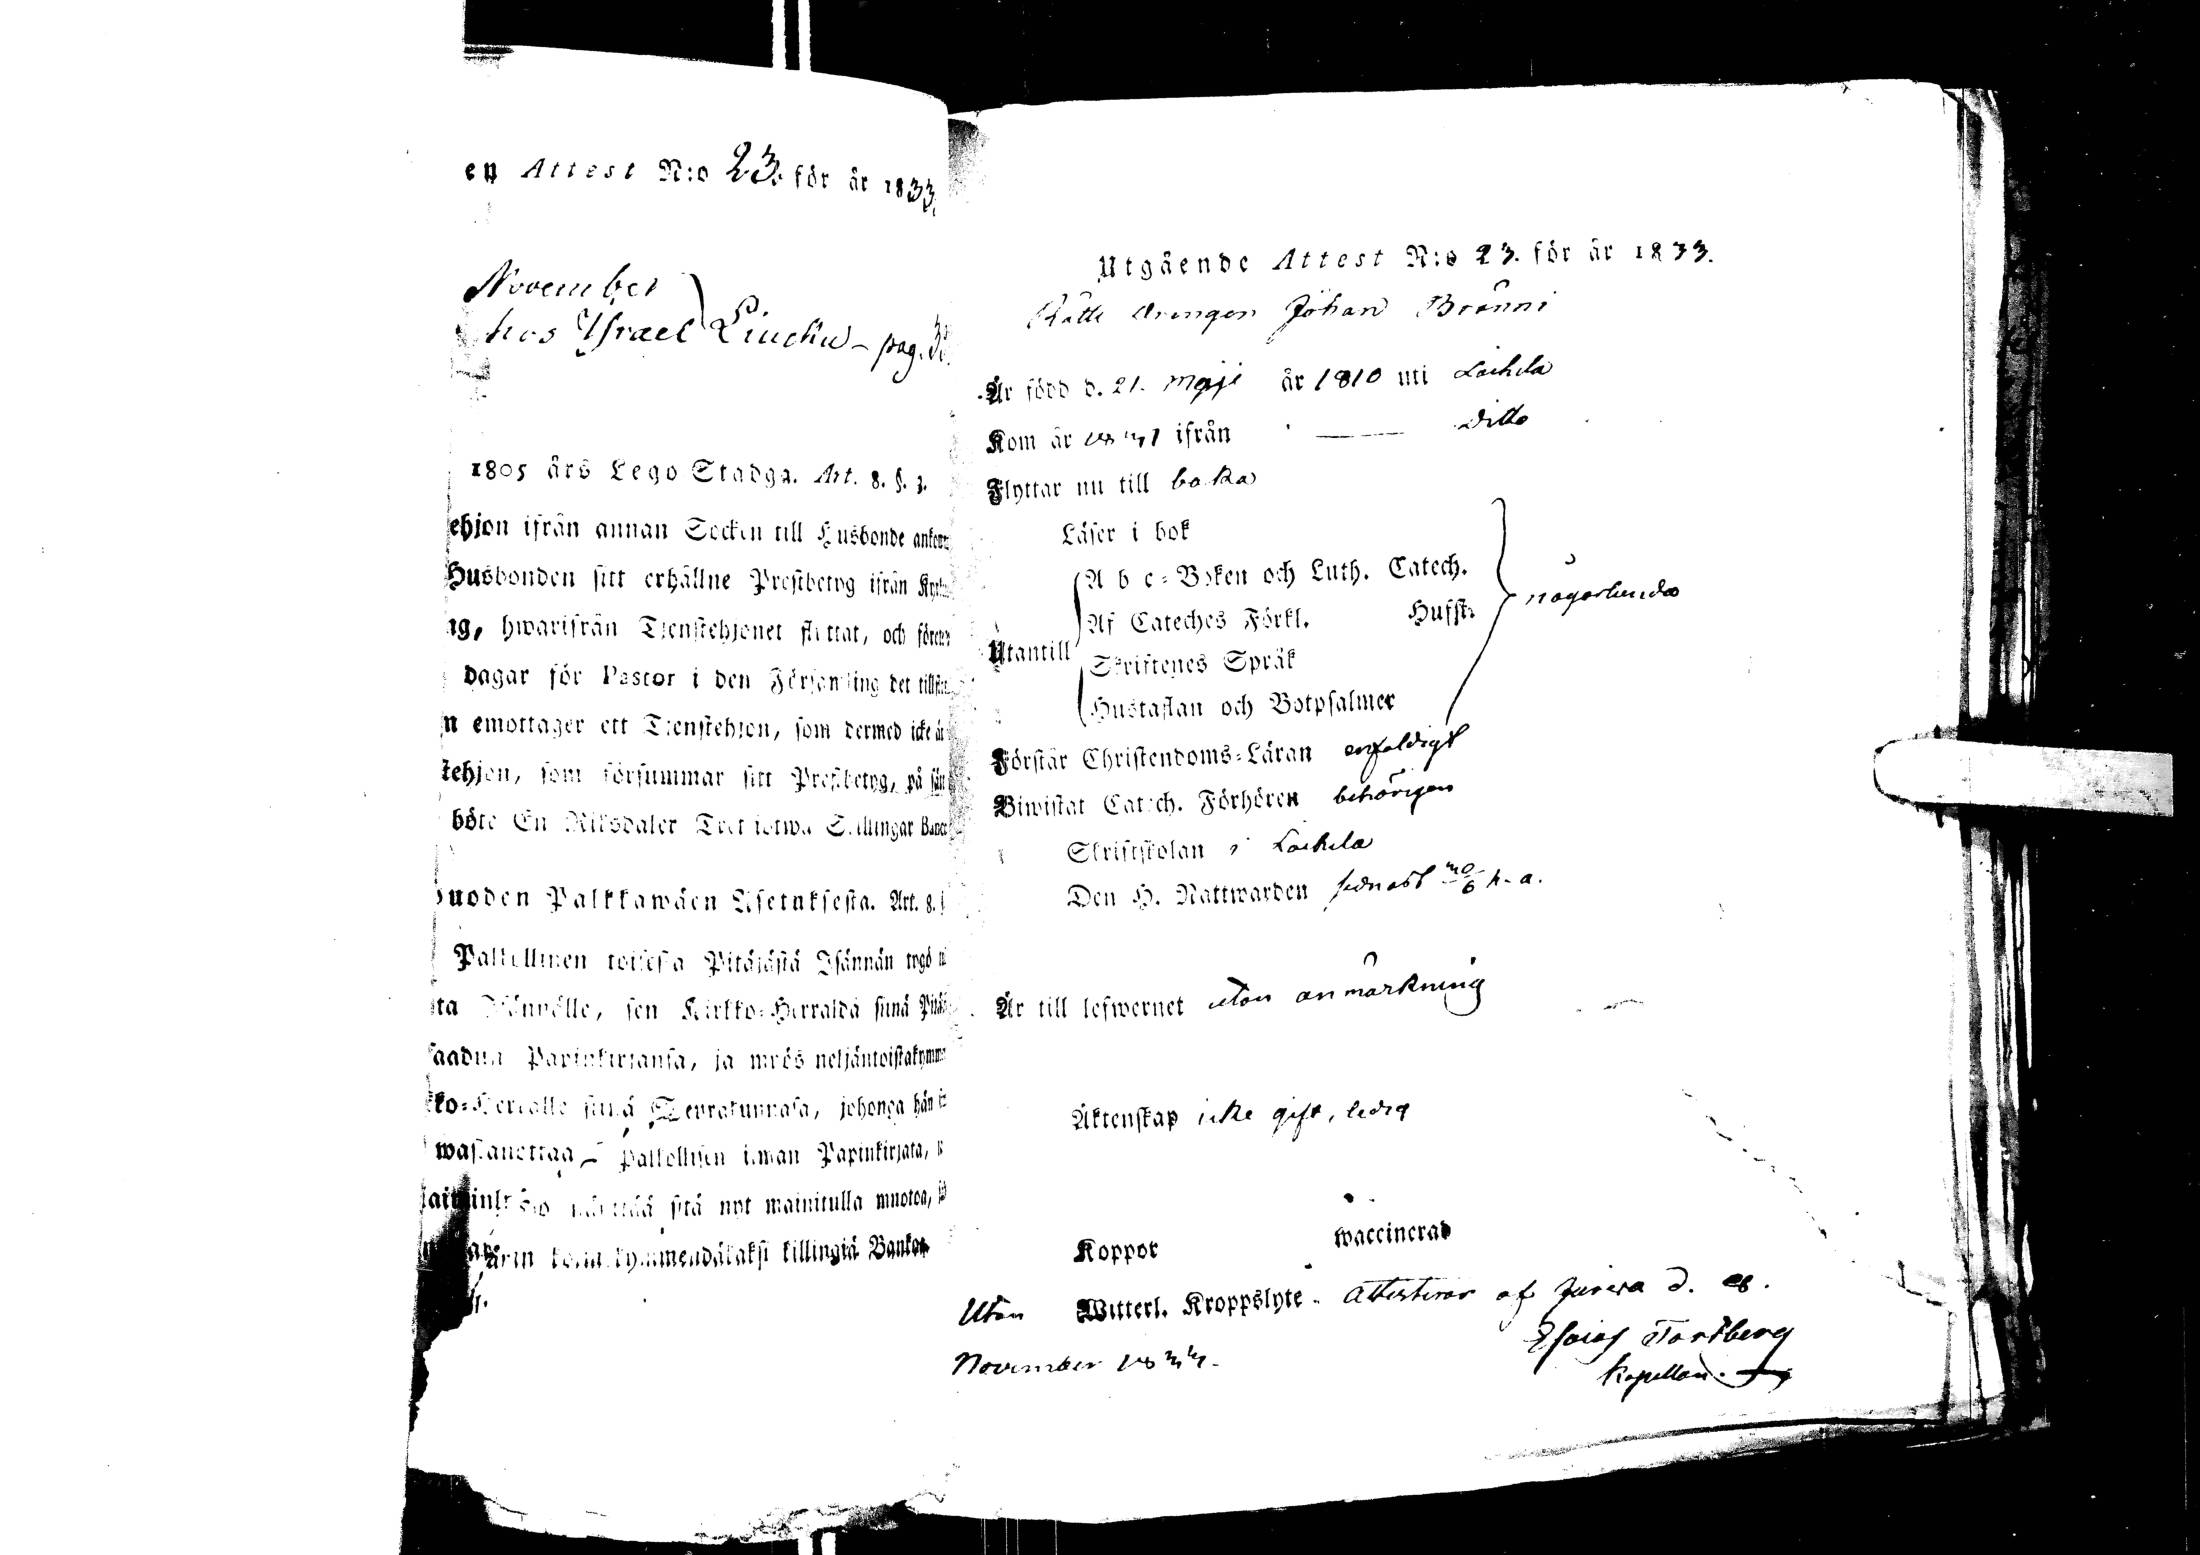 en Attest N:o 23. för år 1833.
November
hos Israel Liuchu - pag.
1805 års Lego Stadga. Art. 8. §. 3.
ehjon ifrån annan Socken till Husbonde
Husbonden sitt erhållne Prestbetyg ifrån
hwarifrån Tjenstehjonet flyttat, och
dagar för Pastor i den Församling det
emottager ett Tjenstehjon, som dermed icke
tehjon, som försummar sitt Prestbetyg, på
böte En Riksdaler Trettiotwå Skillingar
uoden Palkkawäen Asetuksesta. Art. 8.
Palkollinen toisesta Pitäjästä Isännän tygö
ta Isännälle, sen Kirkko-Herralda siinä
saadun Papinkirjansa, ja myös neljäntoistakymm
ko-Herralle siinä Seurakunnasa, johonga hän
wastanottaa Palkollisen ilman Papinkirjata,
sitä nyt mainitulla muotoa,
kymmendäkaksi killingiä Banko
Utgående Attest N:o 23. för år 1833.
Rätte drengen Johan Bränni
Är född d. 21. Maji år 1810 uti Laihela
Kom år ifrån — Ditto
Flyttar nu till baka
Läser i bok
A b c-Boken och Luth. Catech.
Af Cateches Förkl. Husfl.
någorlunda
Utantill
Skriftenes Språk
Hustaflan och Botpsalmer
Förstår Christendoms-Läran enfaldigt
Biwistat Catech. Förhören behörigen
Skriftskolan i Laihela
Den H. Nattwarden senast
Är till lefwernet utan anmärkning
Äktenskap icke gift, ledig
Koppor waccinerad
Utan Witterl. Kroppslyte. Attesterar af Jurwa d.
November 1833.
Esaias
Kapellan.